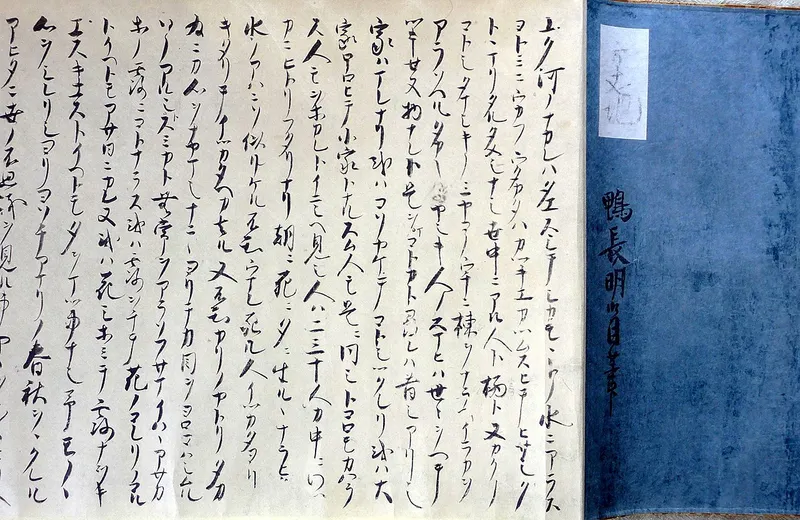 方丈記
鴨長明自筆
ユク河ノナカレハタエスシテシカモモトノ水ニアラス
ヨトミニウカフウタカタハカツキエカツムスヒテヒサシク
トヽマリタルタメシナシ世中ニアル人ト栖ト又カクノ
コトシタマシキノミヤコノウチニ棟ヲナラヘイラカヲ
アラソヘルタカキイヤシキ人ノスマヒハ世々ヲヘテ
ツキセヌ物ナレト是ヲマコトカト尋レハ昔シアリシ
家ハマレナリ或ハコソヤケテコトシツクレリ或ハ大
家ホロヒテ小家トナルスム人モ是ニ同シトコロモカハラ
ス人モヲホカレトイニシヘ見シ人ハ二三十人カ中ニワツ
カニヒトリフタリナリ朝ニ死ニ夕ニ生ルヽナラヒ
水ノアハニソ似リケル不知ウマレ死ル人イツカタヨリ
キタリテイツカタヘカ去ル又不知カリノヤトリタカ
為ニカ心ヲナヤマシナニヽヨリテカ目ヲヨロコハシムル
ソノアルシトスミカト無常ヲアラソフサマイハヽアサカ
ホノ露ニコトナラス或ハ露ヲチテ花ノコレリノコル
トイヘトモアサ日ニカレヌ或ハ花シホミテ露ナヲキ
エスキエストイヘトモタヲマツ事ナシ予モノヽ
心ヲシレリシヨリヨソチアマリノ春秋ヲヽクレル
アヒタニ世ノ不思議ヲ見ル事